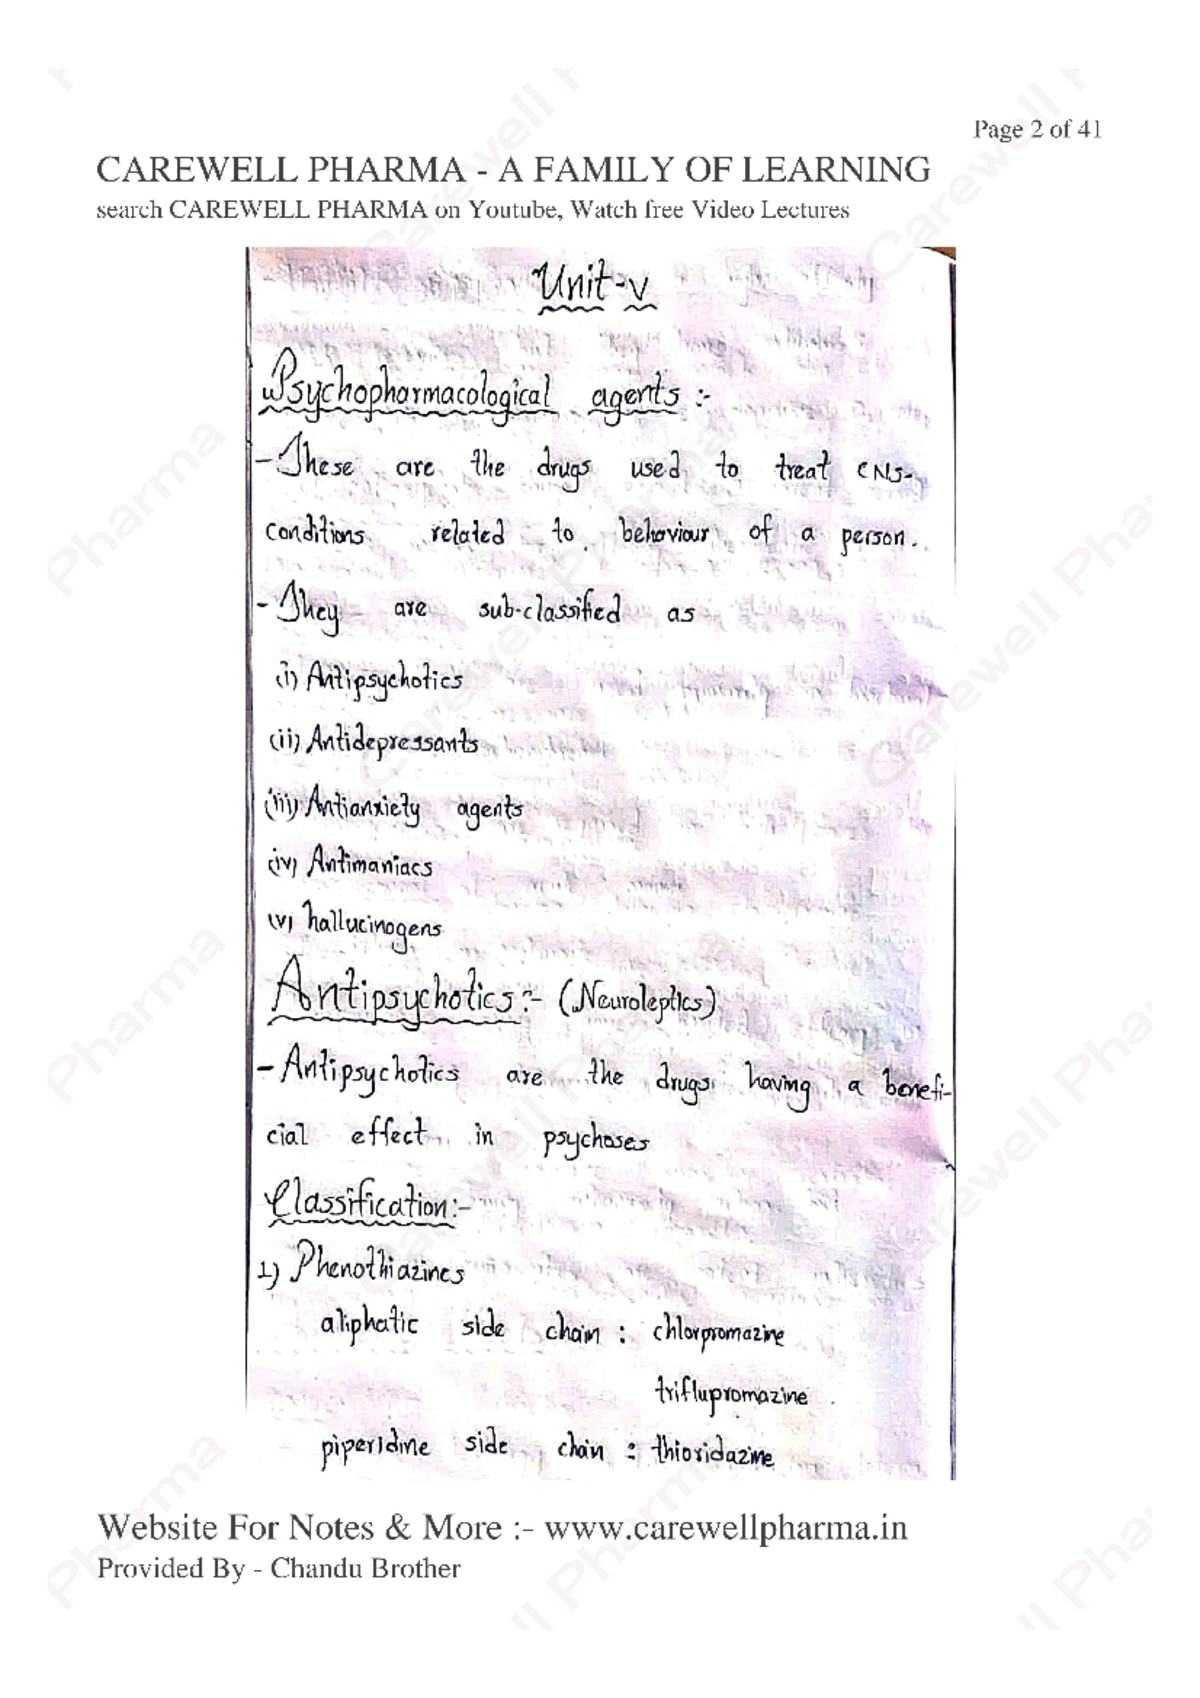 Page 2 of 41
CAREWELL PHARMA - A FAMILY OF LEARNING
search CAREWELL PHARMA on Youtube, Watch free Video Lectures
Unit-V
Psychopharmacological agents :-
- These are the drugs used to treat CNS-
conditions related to behaviour of a person.
- They are sub-classified as
(i) Antipsychotics
(ii) Antidepressants
(iii) Antianxiety agents
(iv) Antimaniacs
(v) hallucinogens
Antipsychotics:- (Neuroleptics)
- Antipsychotics are the drugs having a benefi-
cial effect in psychoses
Classification:-
1) Phenothiazines
aliphatic side chain : chlorpromazine
triflupromazine
piperidine side chain : thioridazine
Website For Notes & More :- www.carewellpharma.in
Provided By - Chandu Brother